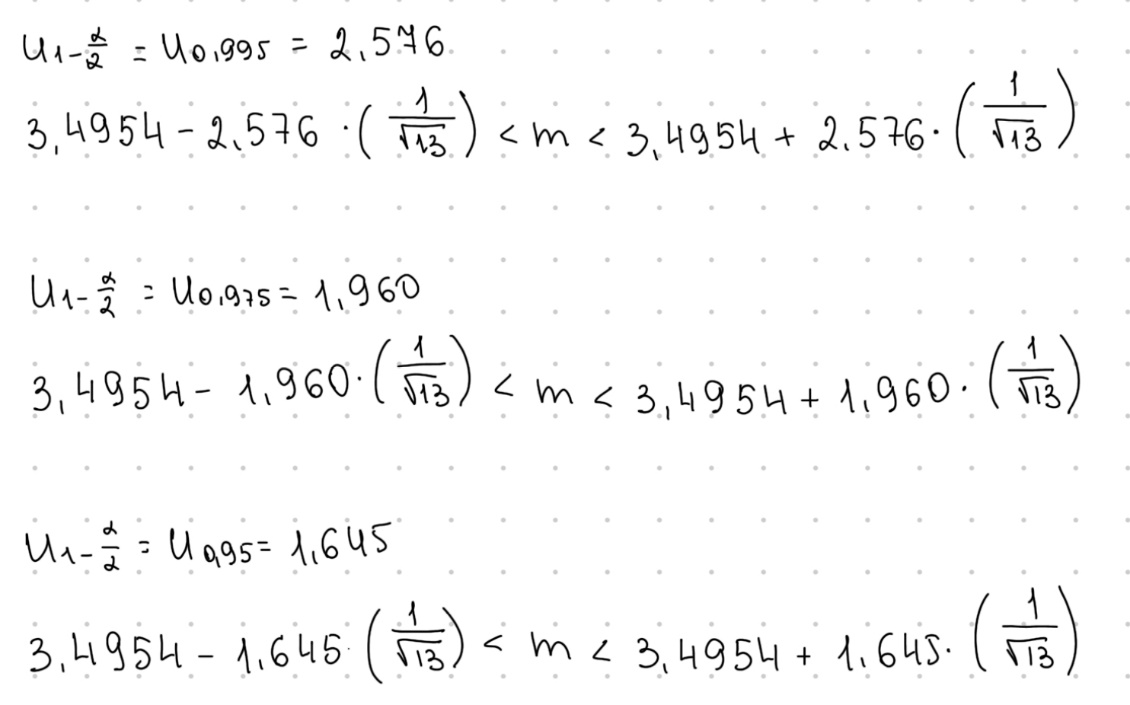 u₁₋α/₂ = u₀,₉₉₅ = 2,576
3,4954 - 2,576 · (1/√13) < m < 3,4954 + 2,576 · (1/√13)
u₁₋α/₂ = u₀,₉₇₅ = 1,960
3,4954 - 1,960 · (1/√13) < m < 3,4954 + 1,960 · (1/√13)
u₁₋α/₂ = u₀,₉₅ = 1,645
3,4954 - 1,645 · (1/√13) < m < 3,4954 + 1,645 · (1/√13)